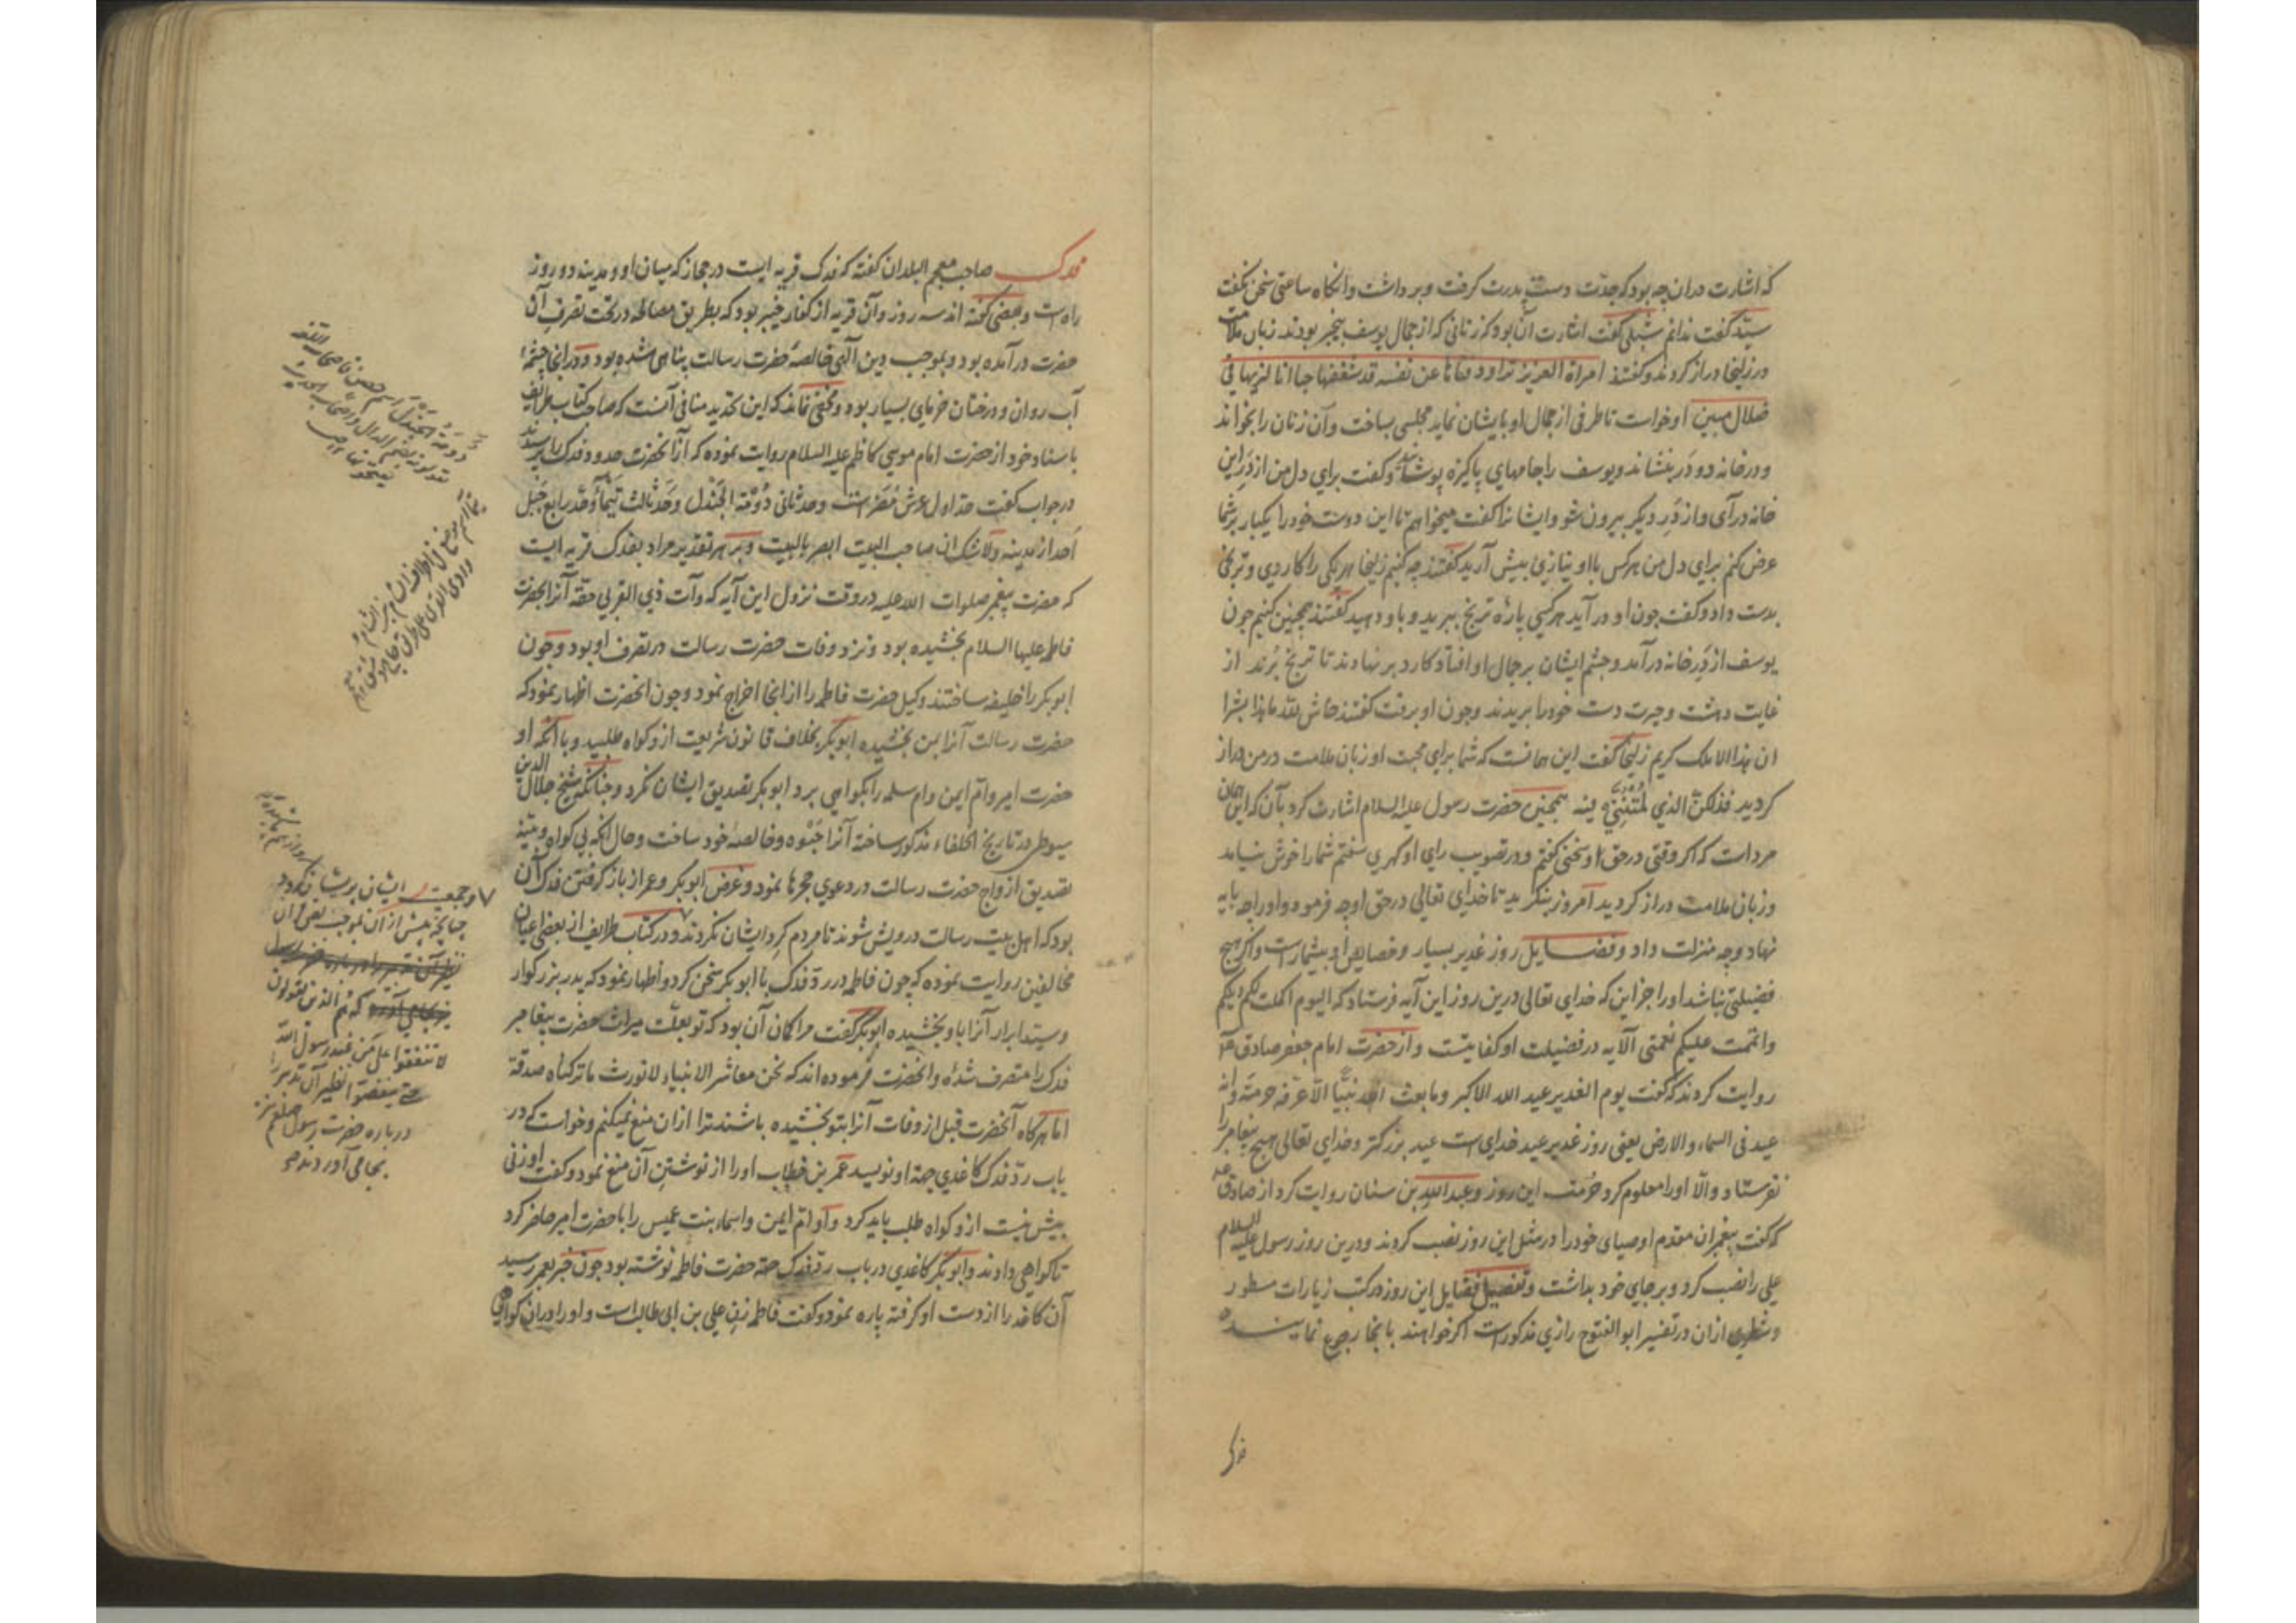 که اشارت دران چه بود که جدّت دست پدرت کرفت و برداشت و انکاه ساعتی سخن نکفت
سیّد کفت ندانم شبلی کفت اشارت آن بود که زنانی که از جمال یوسف بیخبر بودند زبان ملامت
در زلیخا دراز کردند و کفتند امراة العزیز تراود فتاها عن نفسه قد شغفها حبا انا لنریها فی
ضلال مبین او خواست تا طرفی از جمال او بایشان نماید مجلسی بساخت و آن زنان را بخواند
و در خانه دو در بنشاند و یوسف را جامهای پاکیزه پوشانید و کفت برای دل من از در این
خانه درآی و از در دیکر بیرون شو و ایشانرا کفت میخواهم تا این دوست خود را یکبار بر شما
عرض کنم برای دل من هر کس با او نیازی پیش آرید کفتند چه کنیم زلیخا هر یکی را کاردی و ترنجی
بدست داد و کفت چون او در آید هر کسی پارهٔ ترنج ببرید و باو دهید کفتند چنین کنیم چون
یوسف از در خانه درآمد و چشم ایشان بر جمال او افتاد کارد بر نهادند تا ترنج بُرند از
غایت دهشت و حیرت دست خود را بریدند و چون او برفت کفتند حاش لله ما هذا بشرا
ان هذا الا ملک کریم زلیخا کفت این همانست که شما برای محبت او زبان ملامت در من دراز
کردید فذلکنّ الذي لمتنّني فیه همچنین حضرت رسول علیه السلام اشارت کرد بآن که این همان
مرداست که اکر وقتی در حق او سخنی کفتم و در تصویب رای او کهری سفتم شما را خوش نیامد
و زبان ملامت دراز کردید امروز بنکرید تا خدای تعالی در حق او چه فرمود و او را چه پایه
نهاد و چه منزلت داد و فضایل روز غدیر بسیار و خصایص او بیشمارست و اکر هیچ
فضیلتی نباشد او را جز این که خدای تعالی درین روز این آیه فرستاد که الیوم اکملت لکم دینکم
و اتممت علیکم نعمتی الآیه در فضیلت او کفایتست و از حضرت امام جعفر صادق ع
روایت کردند که کفت یوم الغدیر عید الله الاکبر و ما بعث الله نبیّا الّا عرّفه حرمته و انه
عید فی السماء و الارض یعنی روز غدیر عید خدای است عید بزرکتر و خدای تعالی هیچ پیغامبر را
نفرستاد و الّا او را معلوم کرد حرمت این روز و عبدالله بن سنان روایت کرد از صادق ع
که کفت پیغمبران مقدم اوصیای خود را در مثل این روز نصب کردند و درین روز رسول علیه السلام
علی را نصب کرد و بر جای خود بداشت و تفصیل فضایل این روز در کتب زیارات مسطور
و شطری ازان در تفسیر ابو الفتوح رازی مذکورست اکر خواهند بانجا رجوع نمایند
فدک
فدک صاحب معجم البلدان کفته که فدک قریه ایست در حجاز که میان او و مدینه دو روز
راه است و بعضی کفته اند سه روز و آن قریه از کفار خیبر بود که بطریق مصالحه در تحت تصرف آن
حضرت درآمده بود و بموجب دین الهی خالصهٔ حضرت رسالت پناهی شده بود و در انجا چشمهٔ
آب روان و درختان خرمای بسیار بود و مخفی نماند که این تحدید منافی آنست که صاحب کتاب طرایف
باسناد خود از حضرت امام موسی کاظم علیه السلام روایت نموده که از آنحضرت حدود فدک را پرسیدند
در جواب کفت حدّ اول عرش مصر است و حد ثانی دُوْمَة الجندل و حدّ ثالث تیماء و حدّ رابع جبل
اُحد از مدینه و لا شک ان صاحب البیت ابصر بالبیت و بر هر تقدیر مراد بفدک قریه ایست
که حضرت پیغمبر صلوات الله علیه در وقت نزول این آیه که و آت ذی القربی حقه آنرا بحضرت
فاطمه علیها السلام بخشیده بود و نزد وفات حضرت رسالت در تصرف او بود و چون
ابوبکر را خلیفه ساختند وکیل حضرت فاطمه را از انجا اخراج نمود و چون انحضرت اظهار نمود که
حضرت رسالت آنرا بمن بخشیده ابوبکر بخلاف قانون شریعت ازو کواه طلبید و با آنکه او
حضرت امیر و ام ایمن و ام سلمه را بکواهی برد ابوبکر تصدیق ایشان نکرد و چنانکه شیخ جلال الدین
سیوطی در تاریخ الخلفاء مذکور ساخته آنرا حبوه و خالصهٔ خود ساخت و حال آنکه بی کواه و بیّنه
تصدیق ازواج حضرت رسالت در دعوی حجرها نمود و غرض ابوبکر و عمر از باز کرفتن فدک آن
بود که اهل بیت رسالت درویش شوند تا مردم کرد ایشان نکردند و در کتاب طرایف از بعضی اعیان
مخالفین روایت نموده که چون فاطمه در رد فدک با ابوبکر سخن کرد و اظهار نمود که پدر بزرکوار
و سید ابرار آنرا باو بخشیده ابوبکر کفت مرا کمان آن بود که تو بعلّت میراث حضرت پیغامبر
فدک را متصرف شدهٔ و انحضرت فرموده اند که نحن معاشر الانبیاء لا نورث ما ترکناه صدقة
اما هرکاه آنحضرت قبل از وفات آنرا بتو بخشیده باشند ترا ازان منع نمیکنم و خواست که در
باب ردّ فدک کاغذی جهة او نویسد عمر بن خطاب او را از نوشتن آن منع نمود و کفت او زنی
بیش نیست ازو کواه طلب باید کرد و او ام ایمن و اسماء بنت عمیس را با حضرت امیر حاضر کرد
تا کواهی دادند و ابوبکر کاغذی در باب رد فدک جهة حضرت فاطمه نوشته بود چون خبر بعمر رسید
آن کاغذ را از دست او کرفته پاره نمود و کفت فاطمه زن علی بن ابی طالب است و او را دران کواهی
دَومَةُ الجَندَل اسم حصن
و جمعیت ایشان پریشان کردد
چنانچه پیش از ان بموجب
هم الذین یقولون
لا تنفقوا علی من عند رسول الله
حتی ینفضوا نظیر آن تدبیر را
درباره حضرت رسول صلعم نیز
بجا می آوردند